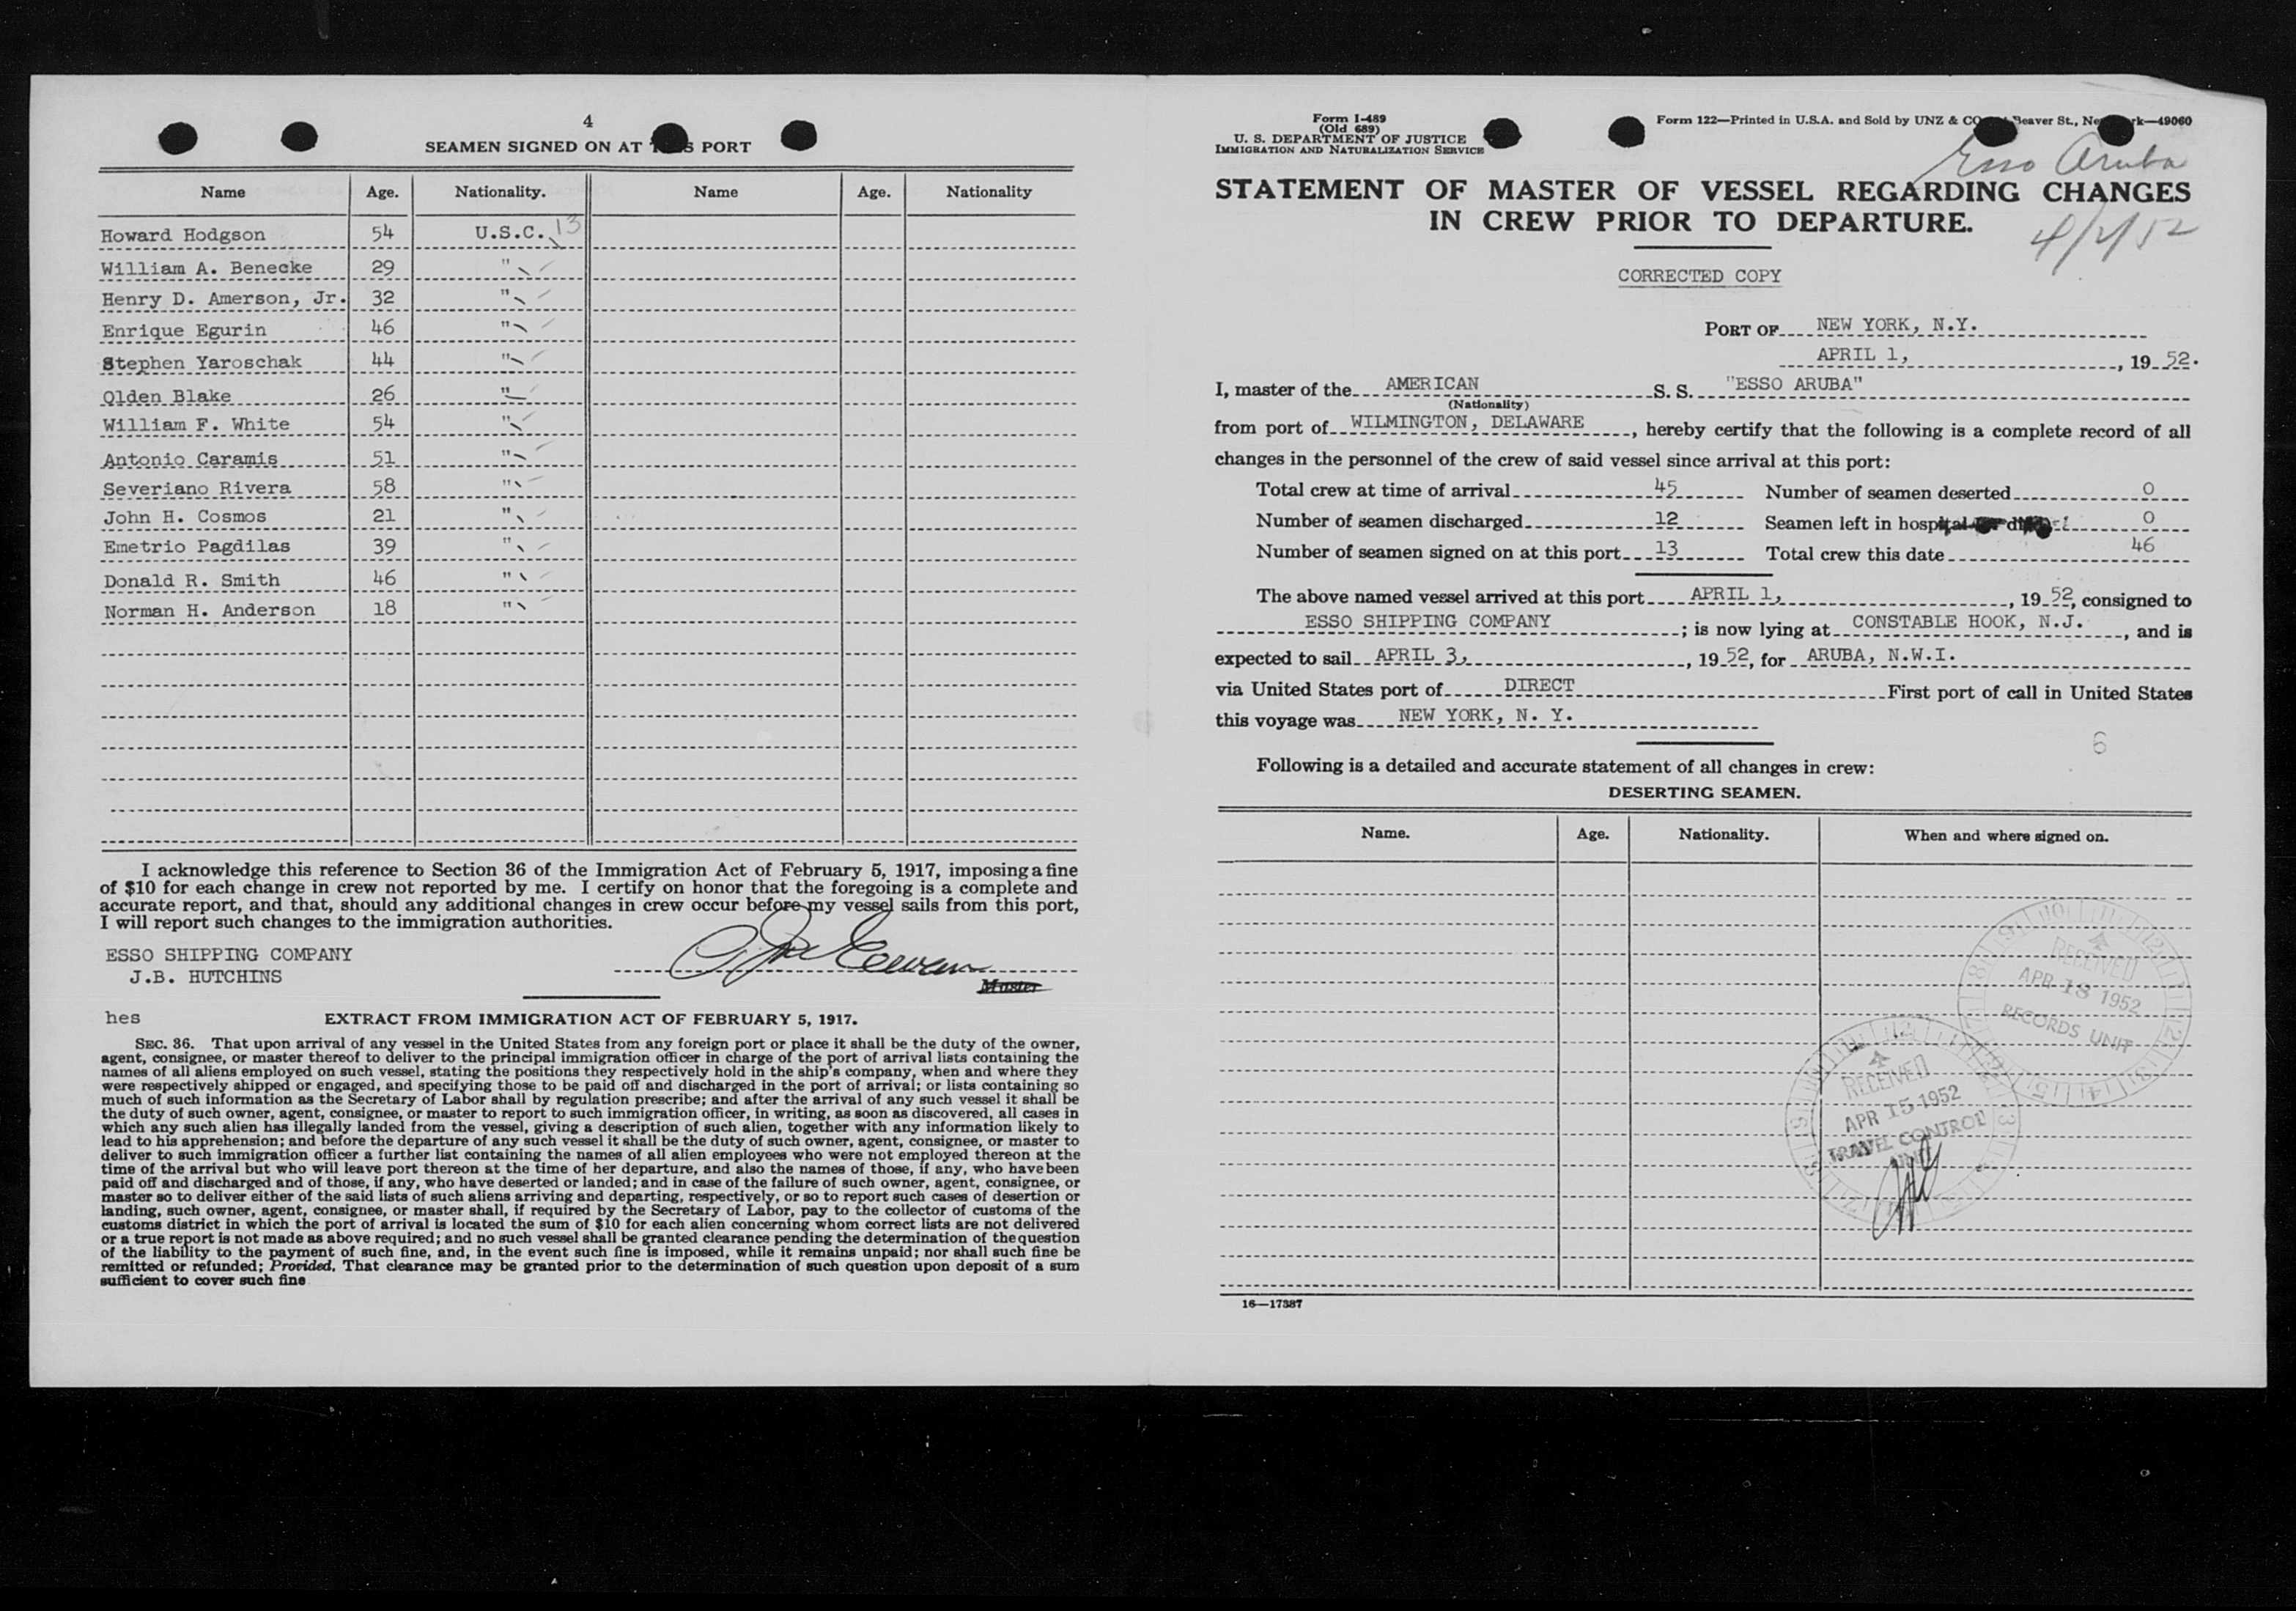 4
SEAMEN SIGNED ON AT THIS PORT
Name Age. Nationality. Name Age. Nationality
Howard Hodgson 54 U.S.C. 13
William A. Benecke 29 "
Henry D. Amerson, Jr. 32 "
Enrique Egurin 46 "
Stephen Yaroschak 44 "
Olden Blake 26 "
William F. White 54 "
Antonio Caramis 51 "
Severiano Rivera 58 "
John H. Cosmos 21 "
Emetrio Pagdilas 39 "
Donald R. Smith 46 "
Norman H. Anderson 18 "
I acknowledge this reference to Section 36 of the Immigration Act of February 5, 1917, imposing a fine
of $10 for each change in crew not reported by me. I certify on honor that the foregoing is a complete and
accurate report, and that, should any additional changes in crew occur before my vessel sails from this port,
I will report such changes to the immigration authorities.
ESSO SHIPPING COMPANY
J.B. HUTCHINS
Master
hes
EXTRACT FROM IMMIGRATION ACT OF FEBRUARY 5, 1917.
SEC. 36. That upon arrival of any vessel in the United States from any foreign port or place it shall be the duty of the owner,
agent, consignee, or master thereof to deliver to the principal immigration officer in charge of the port of arrival lists containing the
names of all aliens employed on such vessel, stating the positions they respectively hold in the ship's company, when and where they
were respectively shipped or engaged, and specifying those to be paid off and discharged in the port of arrival; or lists containing so
much of such information as the Secretary of Labor shall by regulation prescribe; and after the arrival of any such vessel it shall be
the duty of such owner, agent, consignee, or master to report to such immigration officer, in writing, as soon as discovered, all cases in
which any such alien has illegally landed from the vessel, giving a description of such alien, together with any information likely to
lead to his apprehension; and before the departure of any such vessel it shall be the duty of such owner, agent, consignee, or master to
deliver to such immigration officer a further list containing the names of all alien employees who were not employed thereon at the
time of the arrival but who will leave port thereon at the time of her departure, and also the names of those, if any, who have been
paid off and discharged and of those, if any, who have deserted or landed; and in case of the failure of such owner, agent, consignee, or
master so to deliver either of the said lists of such aliens arriving and departing, respectively, or so to report such cases of desertion or
landing, such owner, agent, consignee, or master shall, if required by the Secretary of Labor, pay to the collector of customs of the
customs district in which the port of arrival is located the sum of $10 for each alien concerning whom correct lists are not delivered
or a true report is not made as above required; and no such vessel shall be granted clearance pending the determination of the question
of the liability to the payment of such fine, and, in the event such fine is imposed, while it remains unpaid; nor shall such fine be
remitted or refunded; Provided, That clearance may be granted prior to the determination of such question upon deposit of a sum
sufficient to cover such fine
Form I-489
(Old 689)
U. S. DEPARTMENT OF JUSTICE
IMMIGRATION AND NATURALIZATION SERVICE
Form 122—Printed in U.S.A. and Sold by UNZ & CO Beaver St., New York—49060
Esso Aruba
STATEMENT OF MASTER OF VESSEL REGARDING CHANGES
IN CREW PRIOR TO DEPARTURE.
CORRECTED COPY
PORT OF NEW YORK, N.Y.
APRIL 1, , 19 52.
I, master of the AMERICAN S. S. "ESSO ARUBA"
(Nationality)
from port of WILMINGTON, DELAWARE, hereby certify that the following is a complete record of all
changes in the personnel of the crew of said vessel since arrival at this port:
Total crew at time of arrival 45 Number of seamen deserted 0
Number of seamen discharged 12 Seamen left in hospital 0
Number of seamen signed on at this port 13 Total crew this date 46
The above named vessel arrived at this port APRIL 1, , 19 52, consigned to
ESSO SHIPPING COMPANY ; is now lying at CONSTABLE HOOK, N.J. , and is
expected to sail APRIL 3, , 19 52, for ARUBA, N.W.I.
via United States port of DIRECT First port of call in United States
this voyage was NEW YORK, N. Y.
6
Following is a detailed and accurate statement of all changes in crew:
DESERTING SEAMEN.
Name. Age. Nationality. When and where signed on.
RECEIVED
APR 18 1952
RECORDS UNIT
RECEIVED
APR 15 1952
TRAVEL CONTROL
UNIT
16—17387